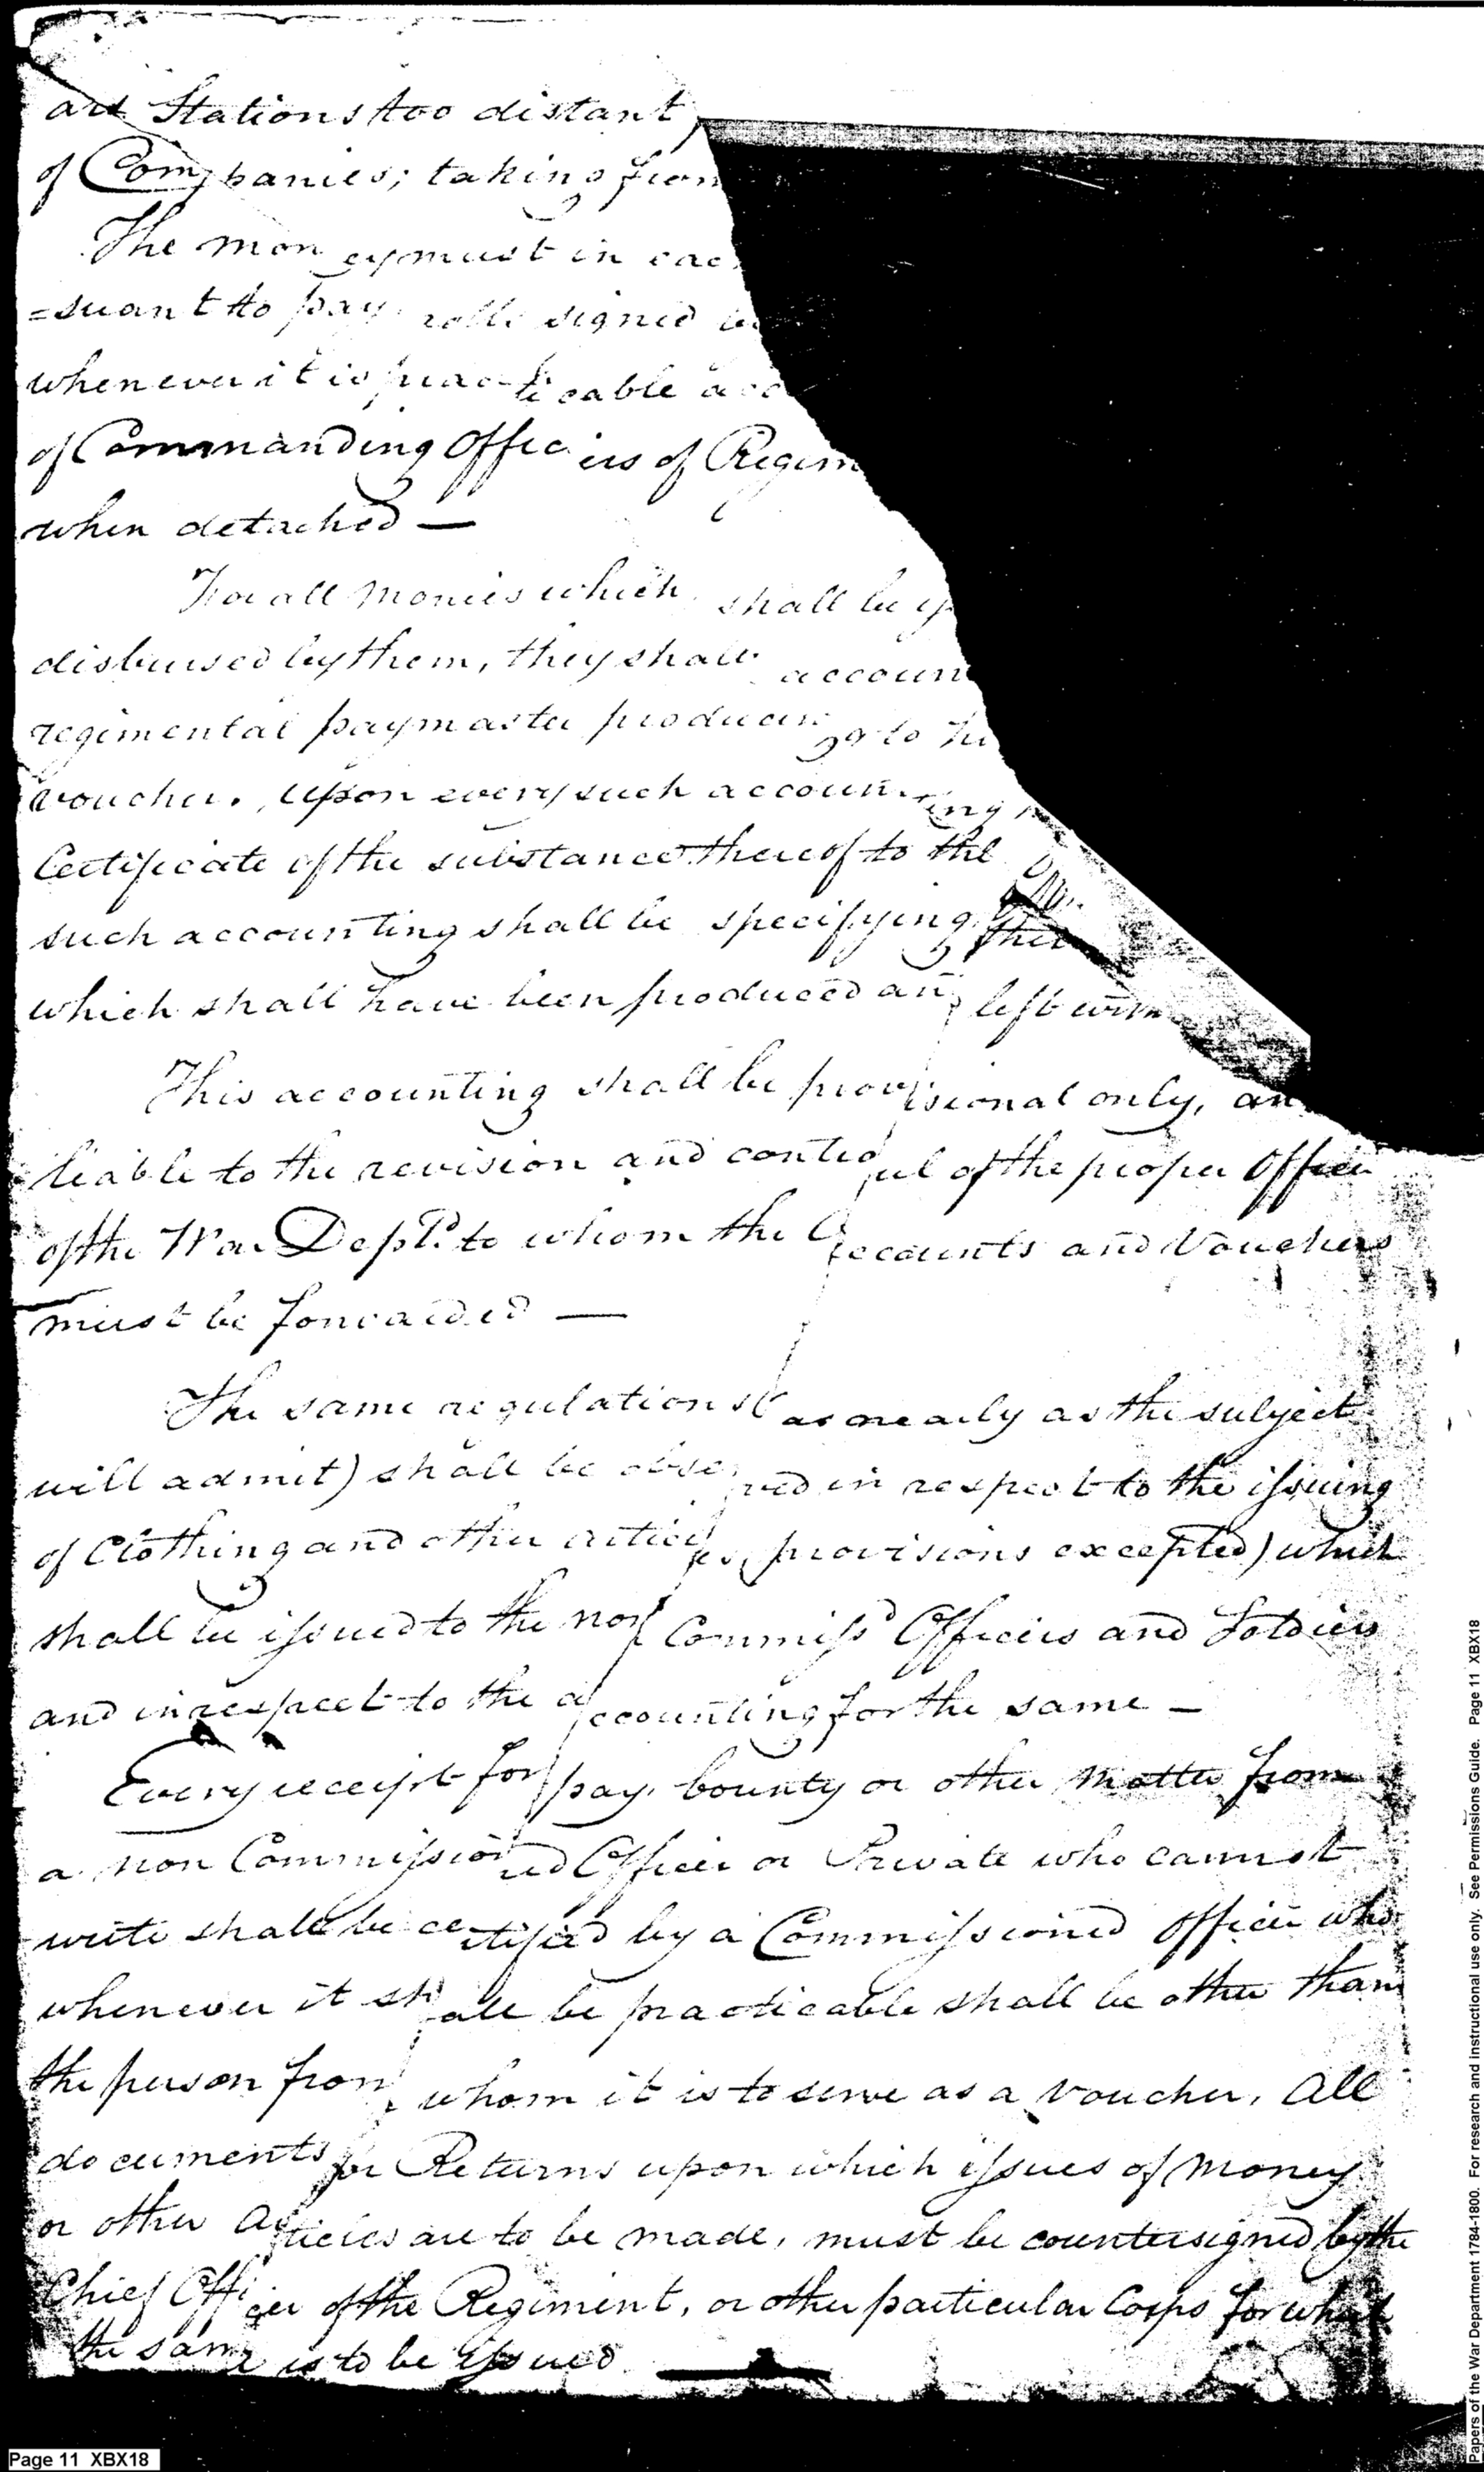 are Stations too distant
of Companies; taking from
The money must in eac
=suant to pay rolls signed
whenever it is practicable acc
of Commanding Officers of Regim
when detached —
For all Monies which shall be
disbursed by them, they shall accoun
regimental paymaster producing to hi
voucher. Upon every such accounting
Certificate of the substance thereof to the
such accounting shall be specifying the
which shall have been produced and left with
This accounting shall be provisional only, an
liable to the revision and controul of the proper Officer
of the War Dept. to whom the Accounts and Vouchers
must be forwarded —
The same regulations (as nearly as the subject
will admit) shall be observed in respect to the issuing
of Clothing and other articles (provisions excepted) which
shall be issued to the non Commissd Officers and Soldiers
and in respect to the accounting for the same —
Every receipt for pay, bounty or other Matter from
a non Commissioned Officer or Private who cannot
write shall be certified by a Commissioned Officer who
whenever it shall be practicable shall be other than
the person from whom it is to serve as a voucher, All
documents or Returns upon which issues of Money
or other Articles are to be made, must be countersigned by the
Chief Officer of the Regiment, or other particular Corps for which
the same is to be issued
Page 11 XBX18
Papers of the War Department 1784-1800. For research and instructional use only. See Permissions Guide. Page 11 XBX18